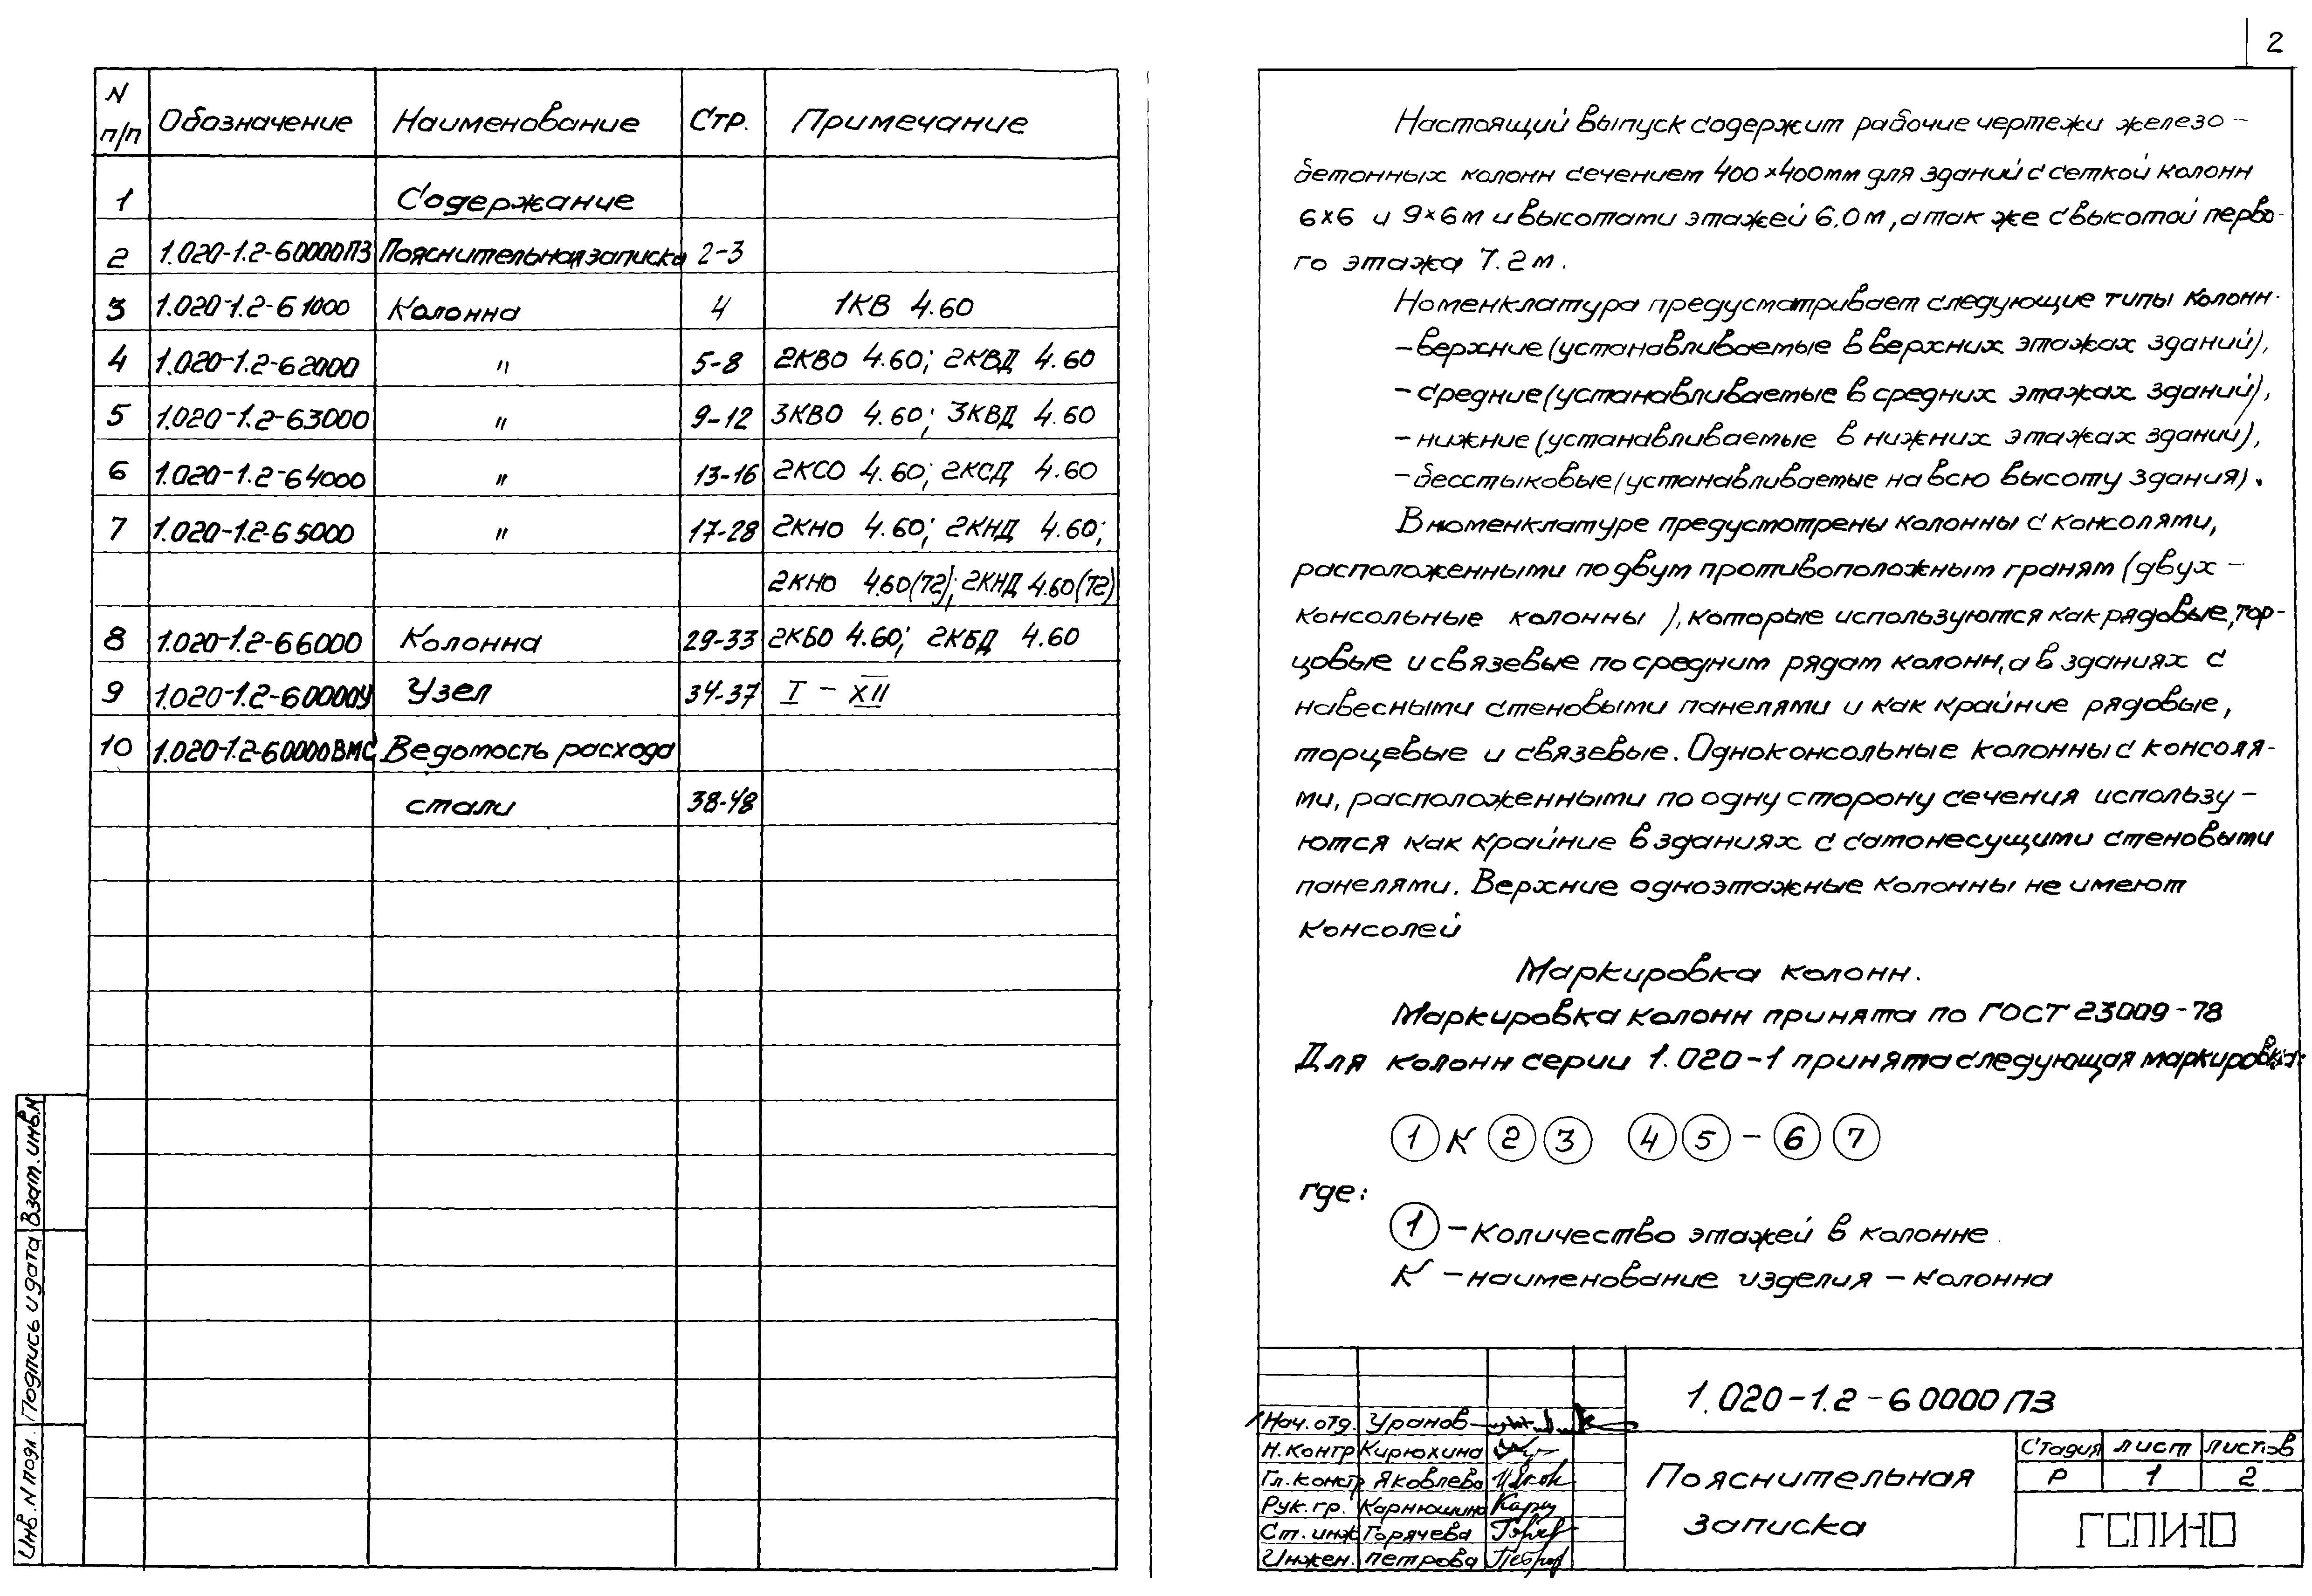 N п/п Обозначение Наименование Стр. Примечание
1 Содержание
2 1.020-1.2-60000ПЗ Пояснительная записка 2-3
3 1.020-1.2-61000 Колонна 4 1КВ 4.60
4 1.020-1.2-62000 " 5-8 2КВО 4.60; 2КВД 4.60
5 1.020-1.2-63000 " 9-12 3КВО 4.60; 3КВД 4.60
6 1.020-1.2-64000 " 13-16 2КСО 4.60; 2КСД 4.60
7 1.020-1.2-65000 " 17-28 2КНО 4.60; 2КНД 4.60;
2КНО 4.60(72); 2КНД 4.60(72)
8 1.020-1.2-66000 Колонна 29-33 2КБО 4.60; 2КБД 4.60
9 1.020-1.2-60000У Узел 34-37 I - XII
10 1.020-1.2-60000ВМС Ведомость расхода
стали 38-48
Инв. N подл. Подпись и дата Взам. инв. N
2
Настоящий выпуск содержит рабочие чертежи железо-
бетонных колонн сечением 400×400мм для зданий с сеткой колонн
6×6 и 9×6м и высотами этажей 6.0м, а так же с высотой перво-
го этажа 7.2м.
Номенклатура предусматривает следующие типы колонн.
- верхние (устанавливаемые в верхних этажах зданий),
- средние (устанавливаемые в средних этажах зданий),
- нижние (устанавливаемые в нижних этажах зданий),
- бесстыковые (устанавливаемые на всю высоту здания).
В номенклатуре предусмотрены колонны с консолями,
расположенными по двум противоположным граням (двух-
консольные колонны), которые используются как рядовые, тор-
цовые и связевые по средним рядам колонн, а в зданиях с
навесными стеновыми панелями и как крайние рядовые,
торцевые и связевые. Одноконсольные колонны с консоля-
ми, расположенными по одну сторону сечения использу-
ются как крайние в зданиях с самонесущими стеновыми
панелями. Верхние одноэтажные колонны не имеют
консолей
Маркировка колонн.
Маркировка колонн принята по ГОСТ 23009-78
Для колонн серии 1.020-1 принята следующая маркировка:
① К ② ③ ④ ⑤ - ⑥ ⑦
где:
① - количество этажей в колонне
К - наименование изделия - колонна
1.020-1.2-60000ПЗ
Нач. отд. Уранов
Н. контр Кирюхина
Гл. констр Яковлева
Рук. гр. Карнюшина
Ст. инж Горячева
Инжен. Петрова
Пояснительная
записка
Стадия лист листов
Р 1 2
ГСПИ-НО